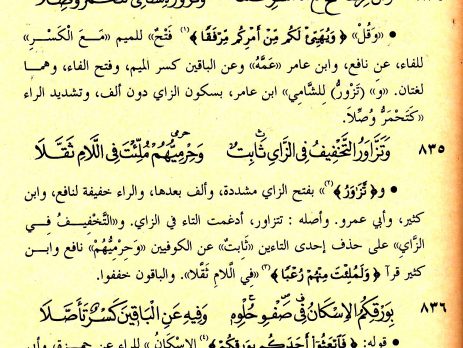 • «وَقُلْ» ﴿ وَيُهَيِّئْ لَكُم مِّنْ أَمْرِكُم مِّرْفَقًا ﴾(١) فَتْحٌ» للميم «مَعَ الْكَسْرِ»
للفاء، عن نافع، وابن عامر «عَمَّهُ» وعن الباقين كسر الميم، وفتح الفاء، وهما
لغتان. «و» (تَزْوَرُّ) لِلشَّامِي» ابن عامر، بسكون الزاي دون ألف، وتشديد الراء
«كَتَحْمَرُّ وُصِّلَا».
٨٣٥ وَتَزَّاوَرُ التَّخْفِيفُ فِي الزَّايِ ثَابِتٌ وَحِرْمِيُّهُمْ مُلِّئْتَ فِي اللَّامِ ثَقَّلَا
• و﴿ تَّزَاوَرُ ﴾(٢) بفتح الزاي مشددة، وألف بعدها، والراء خفيفة لنافع، وابن
كثير، وأبي عمرو. وأصله : تتزاور، أدغمت التاء في الزاي. و«التَّخْفِيفُ فِي
الزَّايِ» على حذف إحدى التاءين «ثَابِتٌ» عن الكوفيين «وَحِرْمِيُّهُمْ» نافع وابن
كثير قرآ ﴿ وَلَمُلِّئْتَ مِنْهُمْ رُعْبًا ﴾(٣) «فِي اللَّامِ ثَقَّلَا». والباقون خففوا.
٨٣٦ بِوَرْقِكُمُ الْإِسْكَانُ فِي صَفْوِ حُلْوِهِ وَفِيهِ عَنِ الْبَاقِينَ كَسْرٌ تَأَصَّلَا
• قوله: ﴿ فَابْعَثُوا أَحَدَكُم بِوَرِقِكُمْ ﴾(٤) «الْإِسْكَانُ» للراء عن حمزة، وأبي